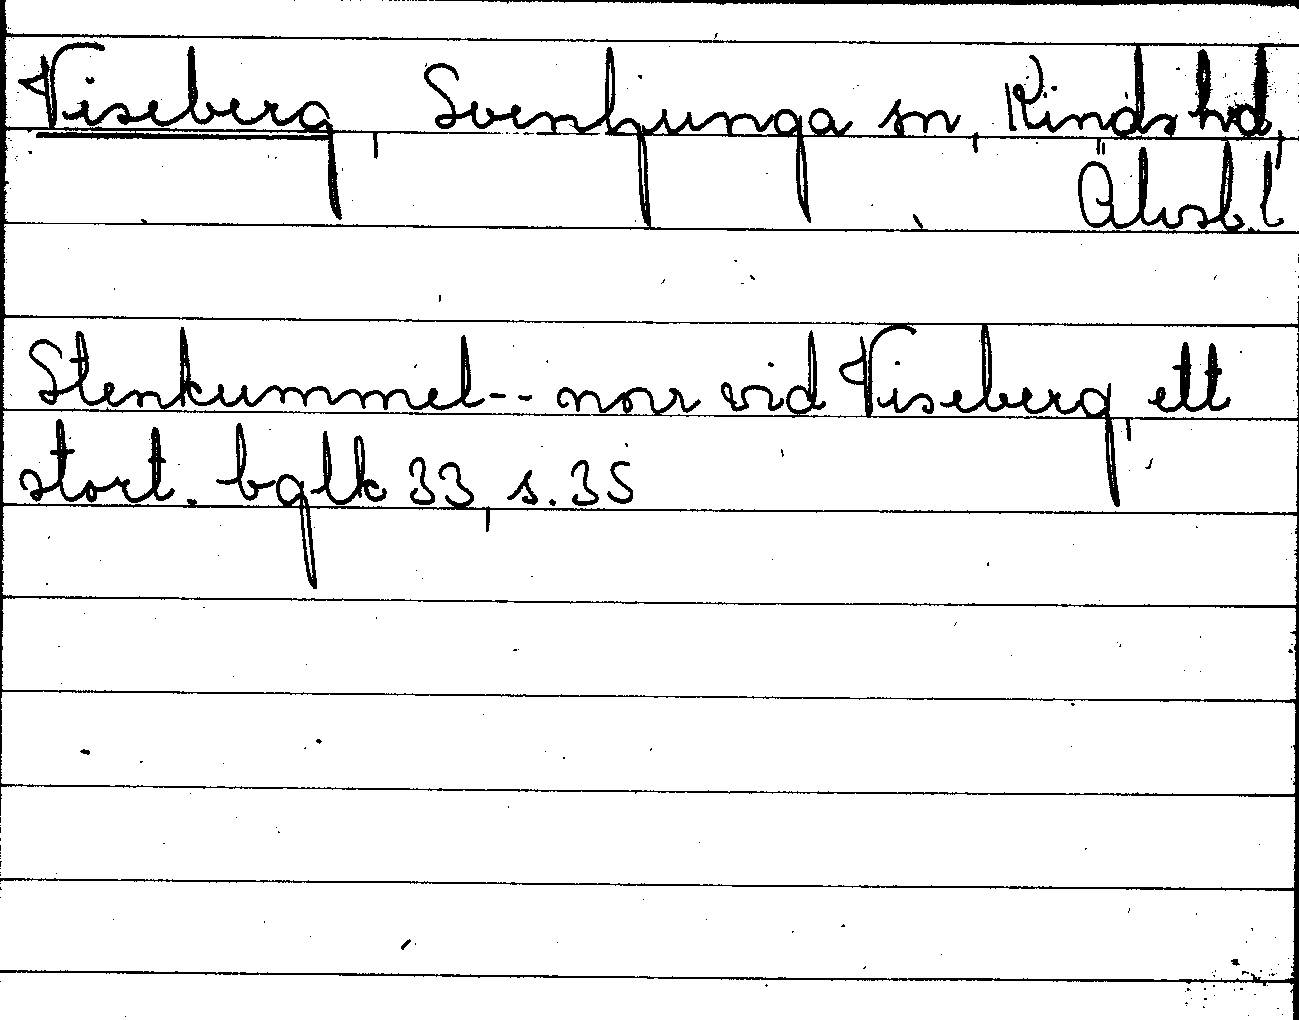 Viseberg, Svenljunga sn, Kinds hd,
Älvsb. l
Stenkummel-- norr vid Viseberg, ett
stort. bglk 33, s. 35